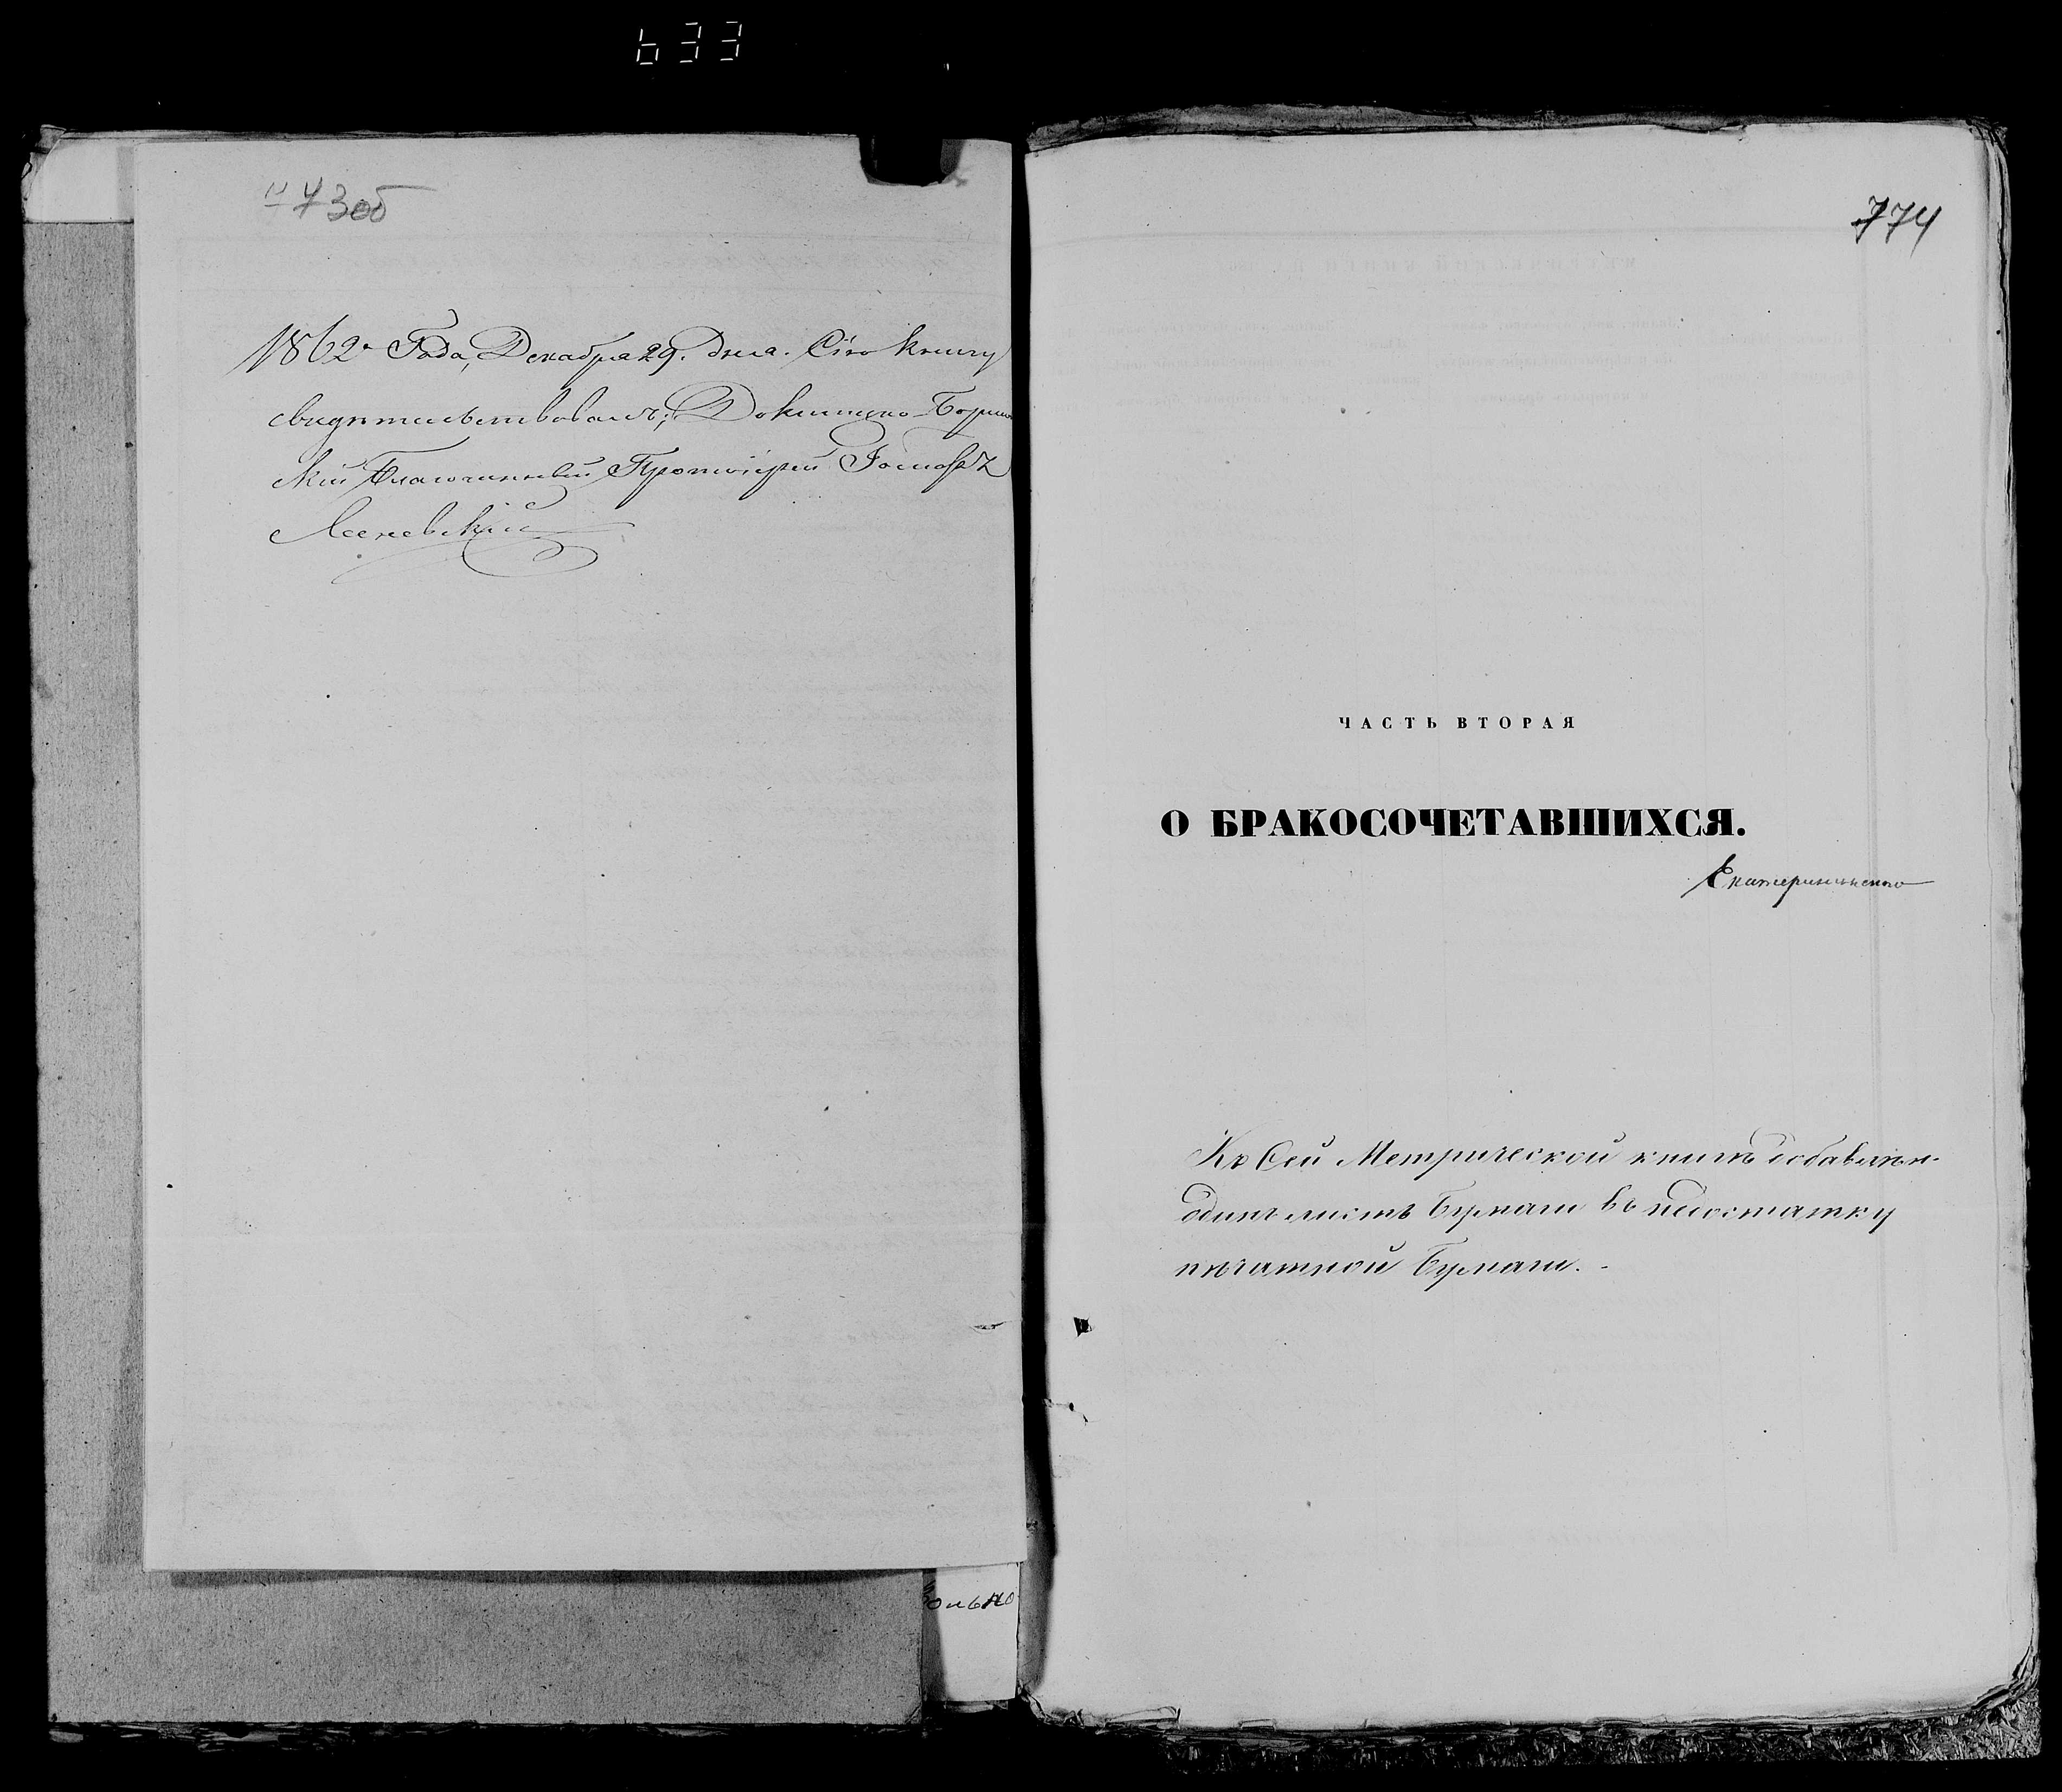 633
73об
1862 Года, Декабря 29. дня. Сію книгу
свидѣтельствовалъ; Докшицко-Борисов
скій Благочинный Протоіерей
774
ЧАСТЬ ВТОРАЯ
О БРАКОСОЧЕТАВШИХСЯ.
Къ Сей Метрической книгѣ добавленъ
одинъ листъ бумаги въ недостатку
печатной бумаги.